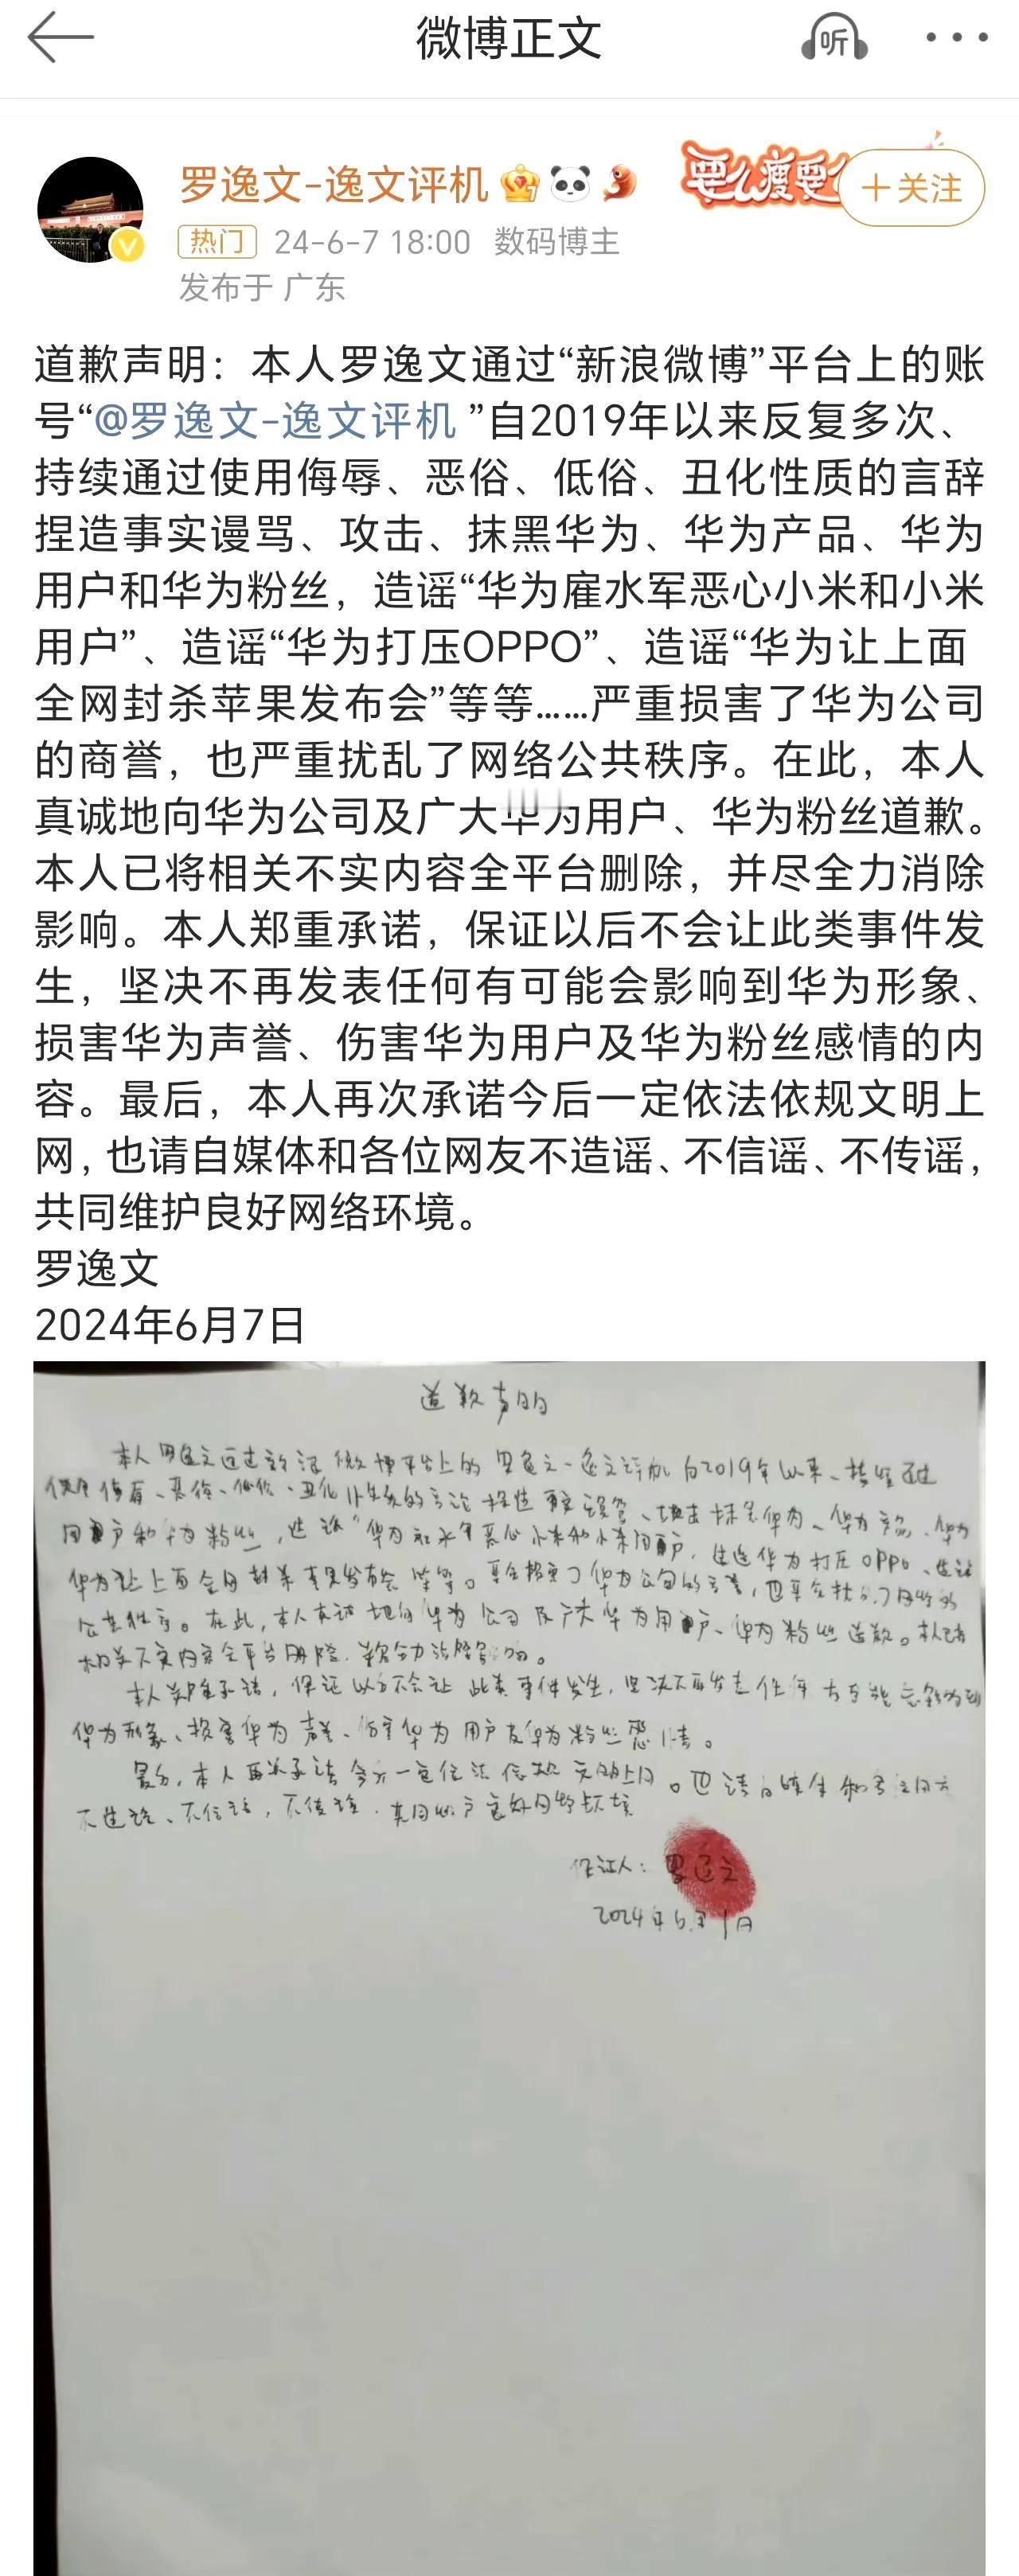 微博正文
听
罗逸文-逸文评机
要么瘦要
+关注
热门 24-6-7 18:00 数码博主
发布于 广东
道歉声明：本人罗逸文通过“新浪微博”平台上的账
号“@罗逸文-逸文评机 ”自2019年以来反复多次、
持续通过使用侮辱、恶俗、低俗、丑化性质的言辞
捏造事实谩骂、攻击、抹黑华为、华为产品、华为
用户和华为粉丝，造谣“华为雇水军恶心小米和小米
用户”、造谣“华为打压OPPO”、造谣“华为让上面
全网封杀苹果发布会”等等……严重损害了华为公司
的商誉，也严重扰乱了网络公共秩序。在此，本人
真诚地向华为公司及广大华为用户、华为粉丝道歉。
本人已将相关不实内容全平台删除，并尽全力消除
影响。本人郑重承诺，保证以后不会让此类事件发
生，坚决不再发表任何有可能会影响到华为形象、
损害华为声誉、伤害华为用户及华为粉丝感情的内
容。最后，本人再次承诺今后一定依法依规文明上
网，也请自媒体和各位网友不造谣、不信谣、不传谣，
共同维护良好网络环境。
罗逸文
2024年6月7日
道歉声明
本人 微博平台上的 自2019年以来、
的言论 抹黑华为、华为 、华为
用户和华为粉丝， “华为 恶心小米和小米用户， 华为打压OPPO、
华为让上面全网封杀 发布会等等。 了华为公司的 ，也
公共秩序。在此，本人 地向华为公司及广大华为用户、华为粉丝道歉。本人已将
相关不实内容全平台删除，
本人郑重承诺，保证以后不会让此类事件发生，坚决不再发表任何
华为形象、损害华为声誉、伤害华为用户及华为粉丝感情。
最后，本人再次承诺今后一定依法依规文明上网。也请
不造谣、不信谣，不传谣，共同维护良好网络环境
保证人：罗逸文
2024年6月 日